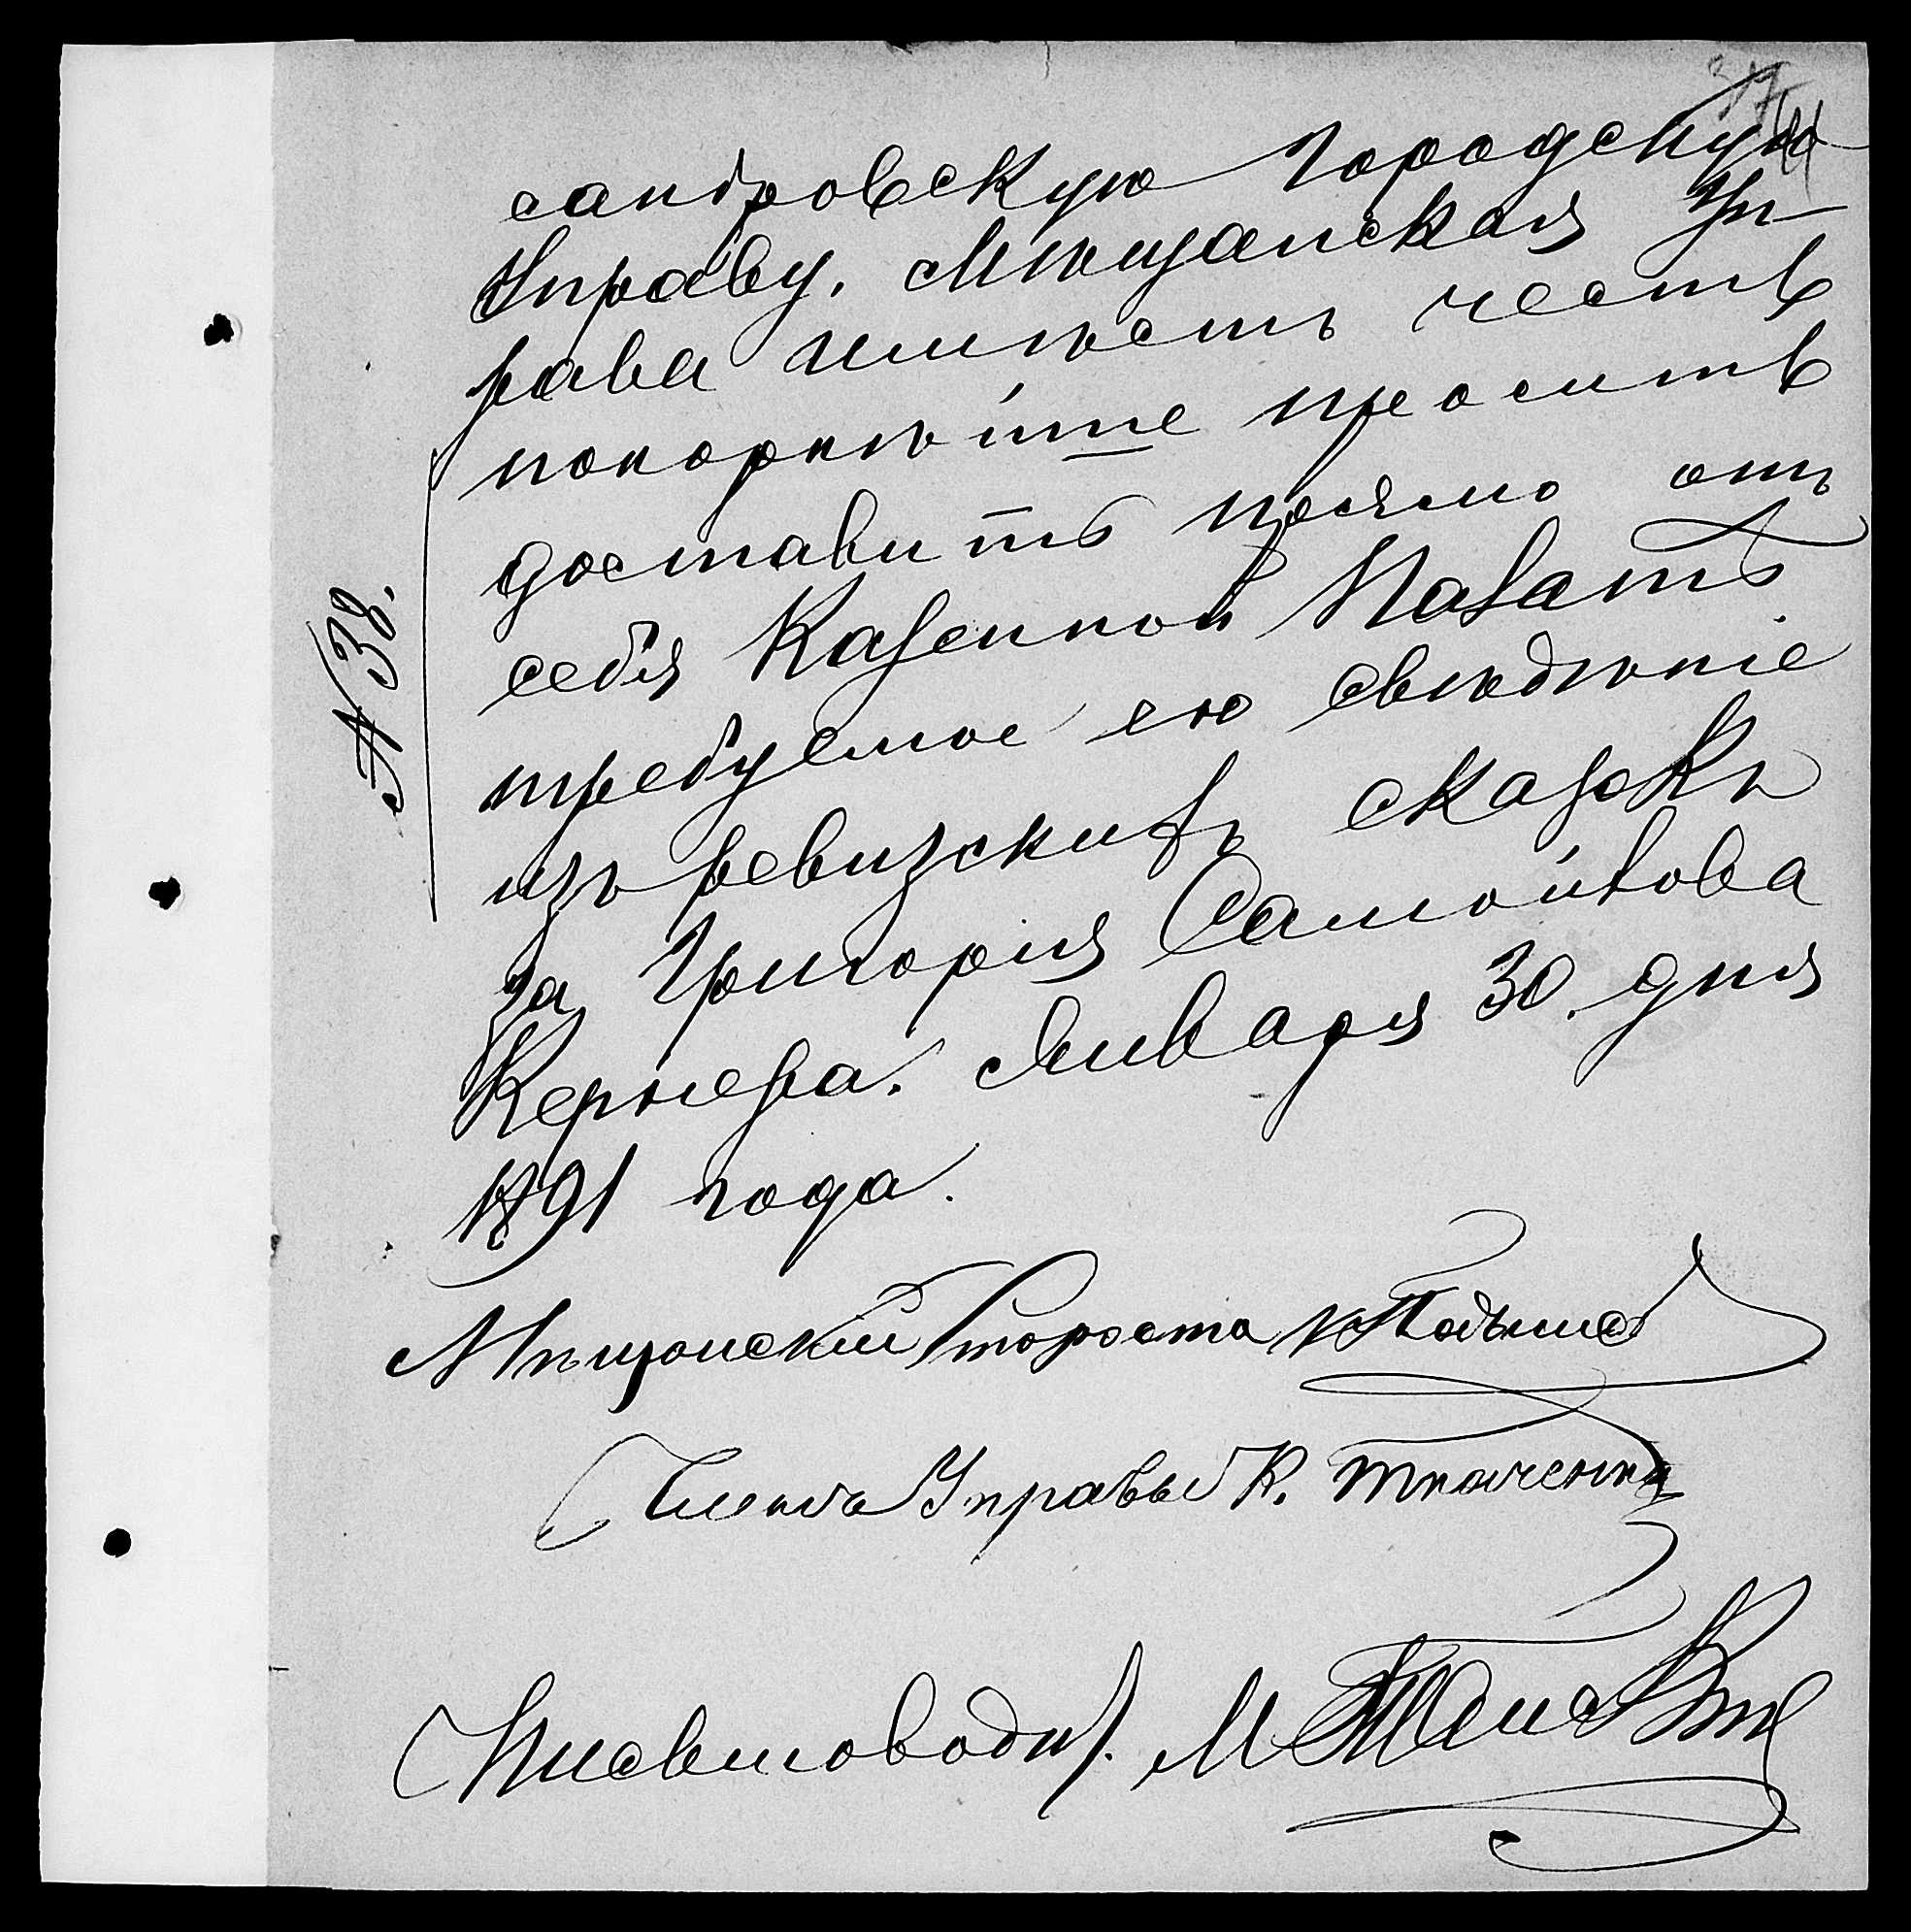 сандровскую Городскую
Управу. Мѣщанская Уп-
рава имѣетъ честь
покорнѣйше просить
доставить прямо отъ
себя Казенной Палатѣ
требуемое ею свѣдѣніе
изъ ревизскихъ сказокъ
за Григорія Самойлова
Января 30 дня
1891 года.
№ 38.
Мѣщанскій Староста
Членъ Управы К. Ткаченко
Письмоводит. М